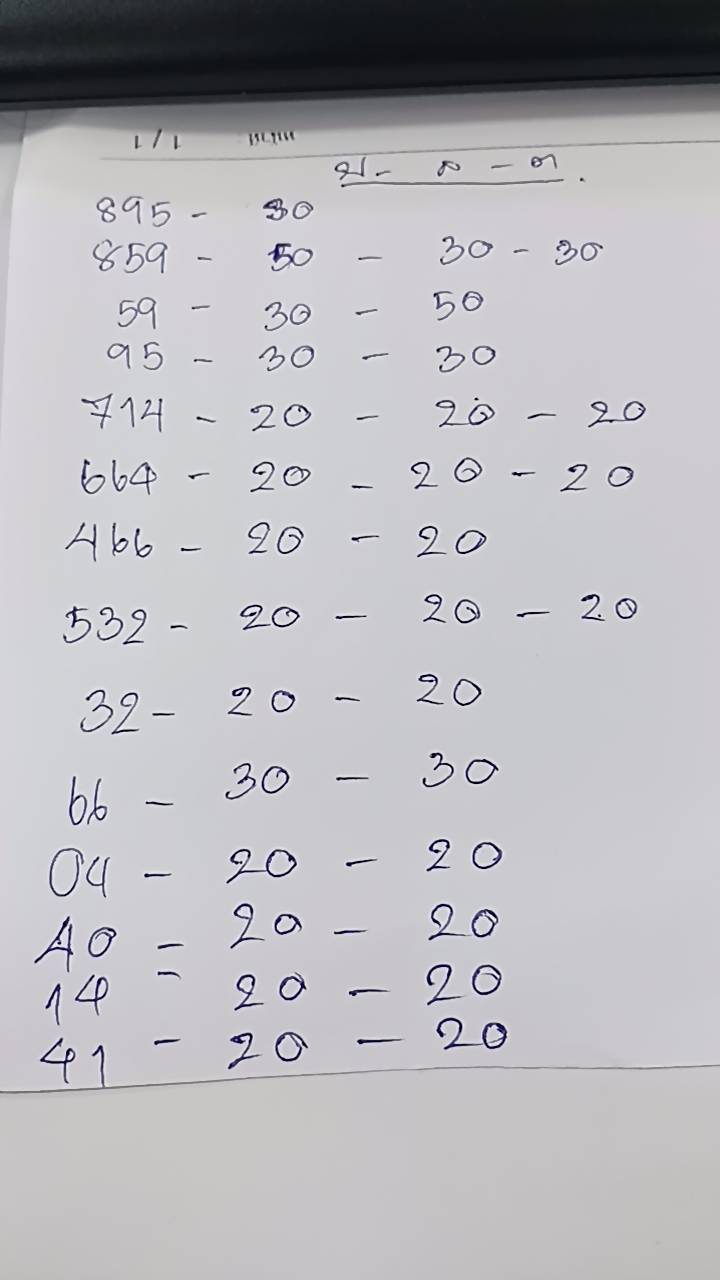 1/1
บ - ล - ต.
895 - 30
859 - 50 - 30 - 30
59 - 30 - 50
95 - 30 - 30
714 - 20 - 20 - 20
664 - 20 - 20 - 20
466 - 20 - 20
532 - 20 - 20 - 20
32 - 20 - 20
66 - 30 - 30
04 - 20 - 20
40 - 20 - 20
14 - 20 - 20
41 - 20 - 20